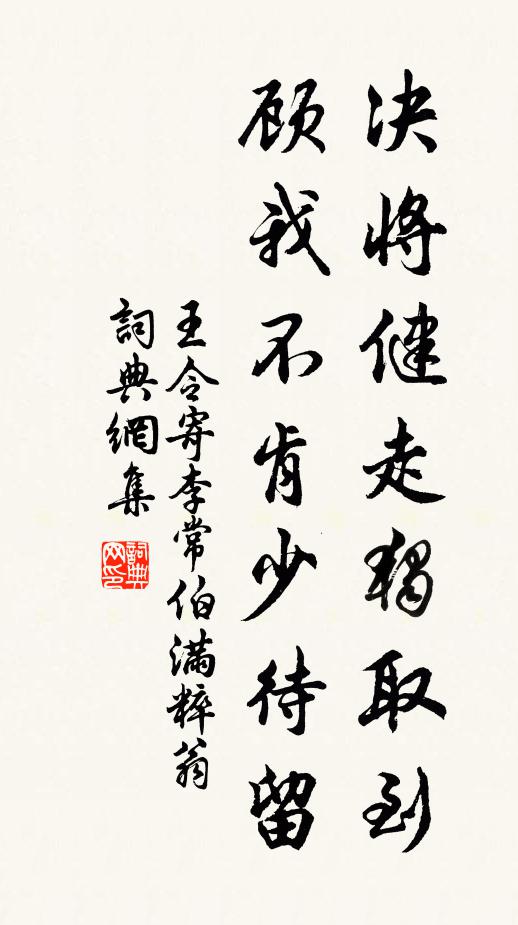 决將健走獨取到
顾我不肯少待留
王令寄李常伯满粹翁
詞典網集
詞典網印